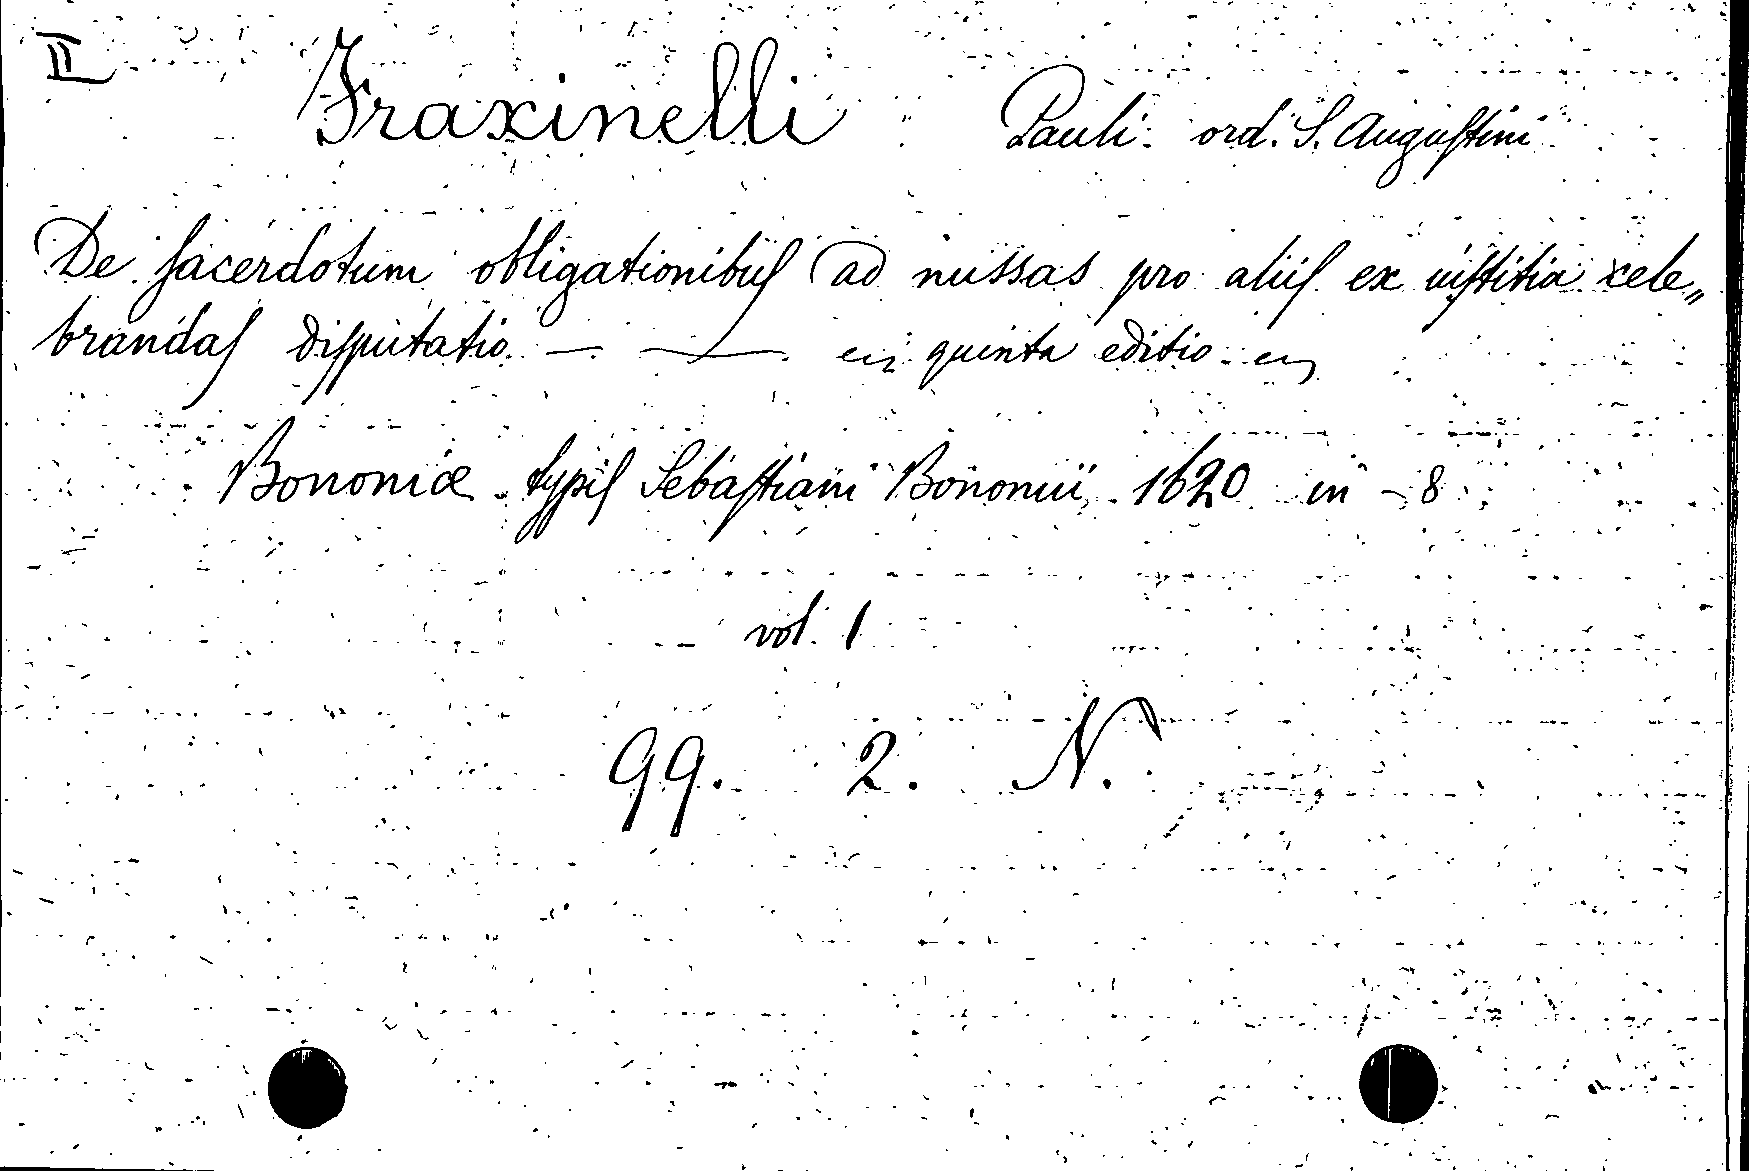 II
Fraxinelli Pauli. ord. S. Augustini
De sacerdotum obligationibus ad missas pro aliis ex iustitia cele„
brandas disputatio. — — quinta editio
Bononiæ typis Sebastiani Bononii, 1620 in - 8
vol. 1
99. 2. N.